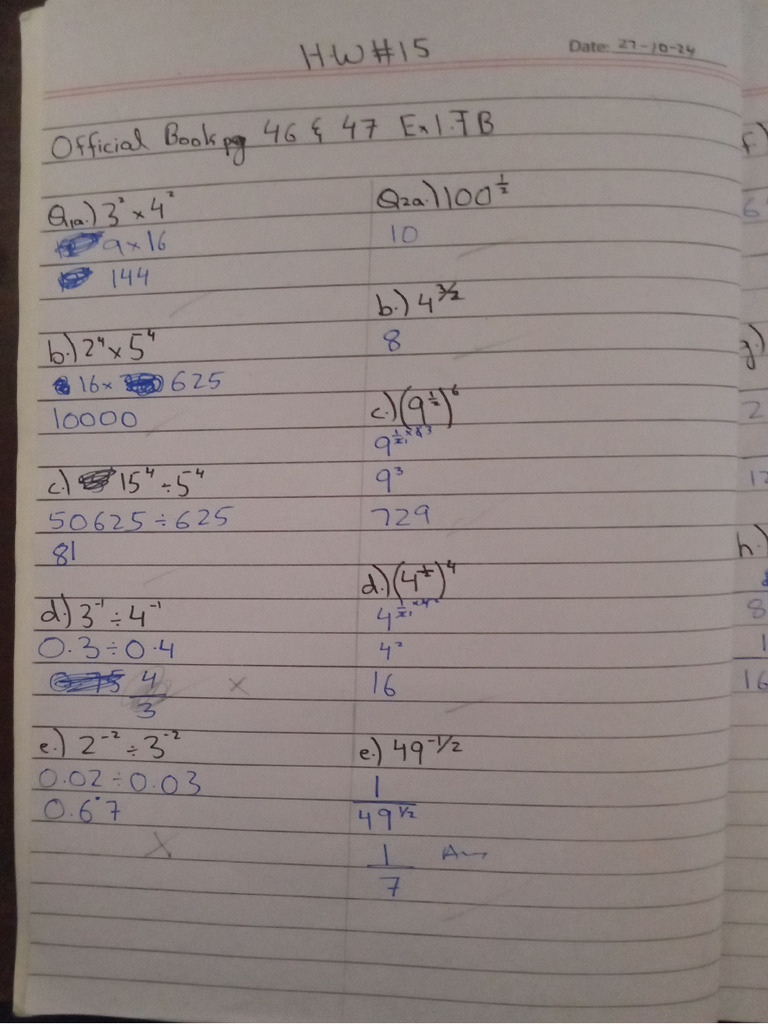 HW#15
Date: 27-10-24
Official Book pg 46 & 47 Ex 1.7B
Q1a.) 3² × 4²
9 × 16
144
b.) 2⁴ × 5⁴
16 × 625
10000
c.) 15⁴ ÷ 5⁴
50625 ÷ 625
81
d.) 3⁻¹ ÷ 4⁻¹
0.3 ÷ 0.4
4/3
×
e.) 2⁻² ÷ 3⁻²
0.02 ÷ 0.03
0.67
×
Q2a.) 100^½
10
b.) 4^3/2
8
c.) (9^½)⁶
9³
729
d.) (4^½)⁴
4²
16
e.) 49^-1/2
1
49^½
1
7
f.)
6
g.)
2
h.)
8
1
16